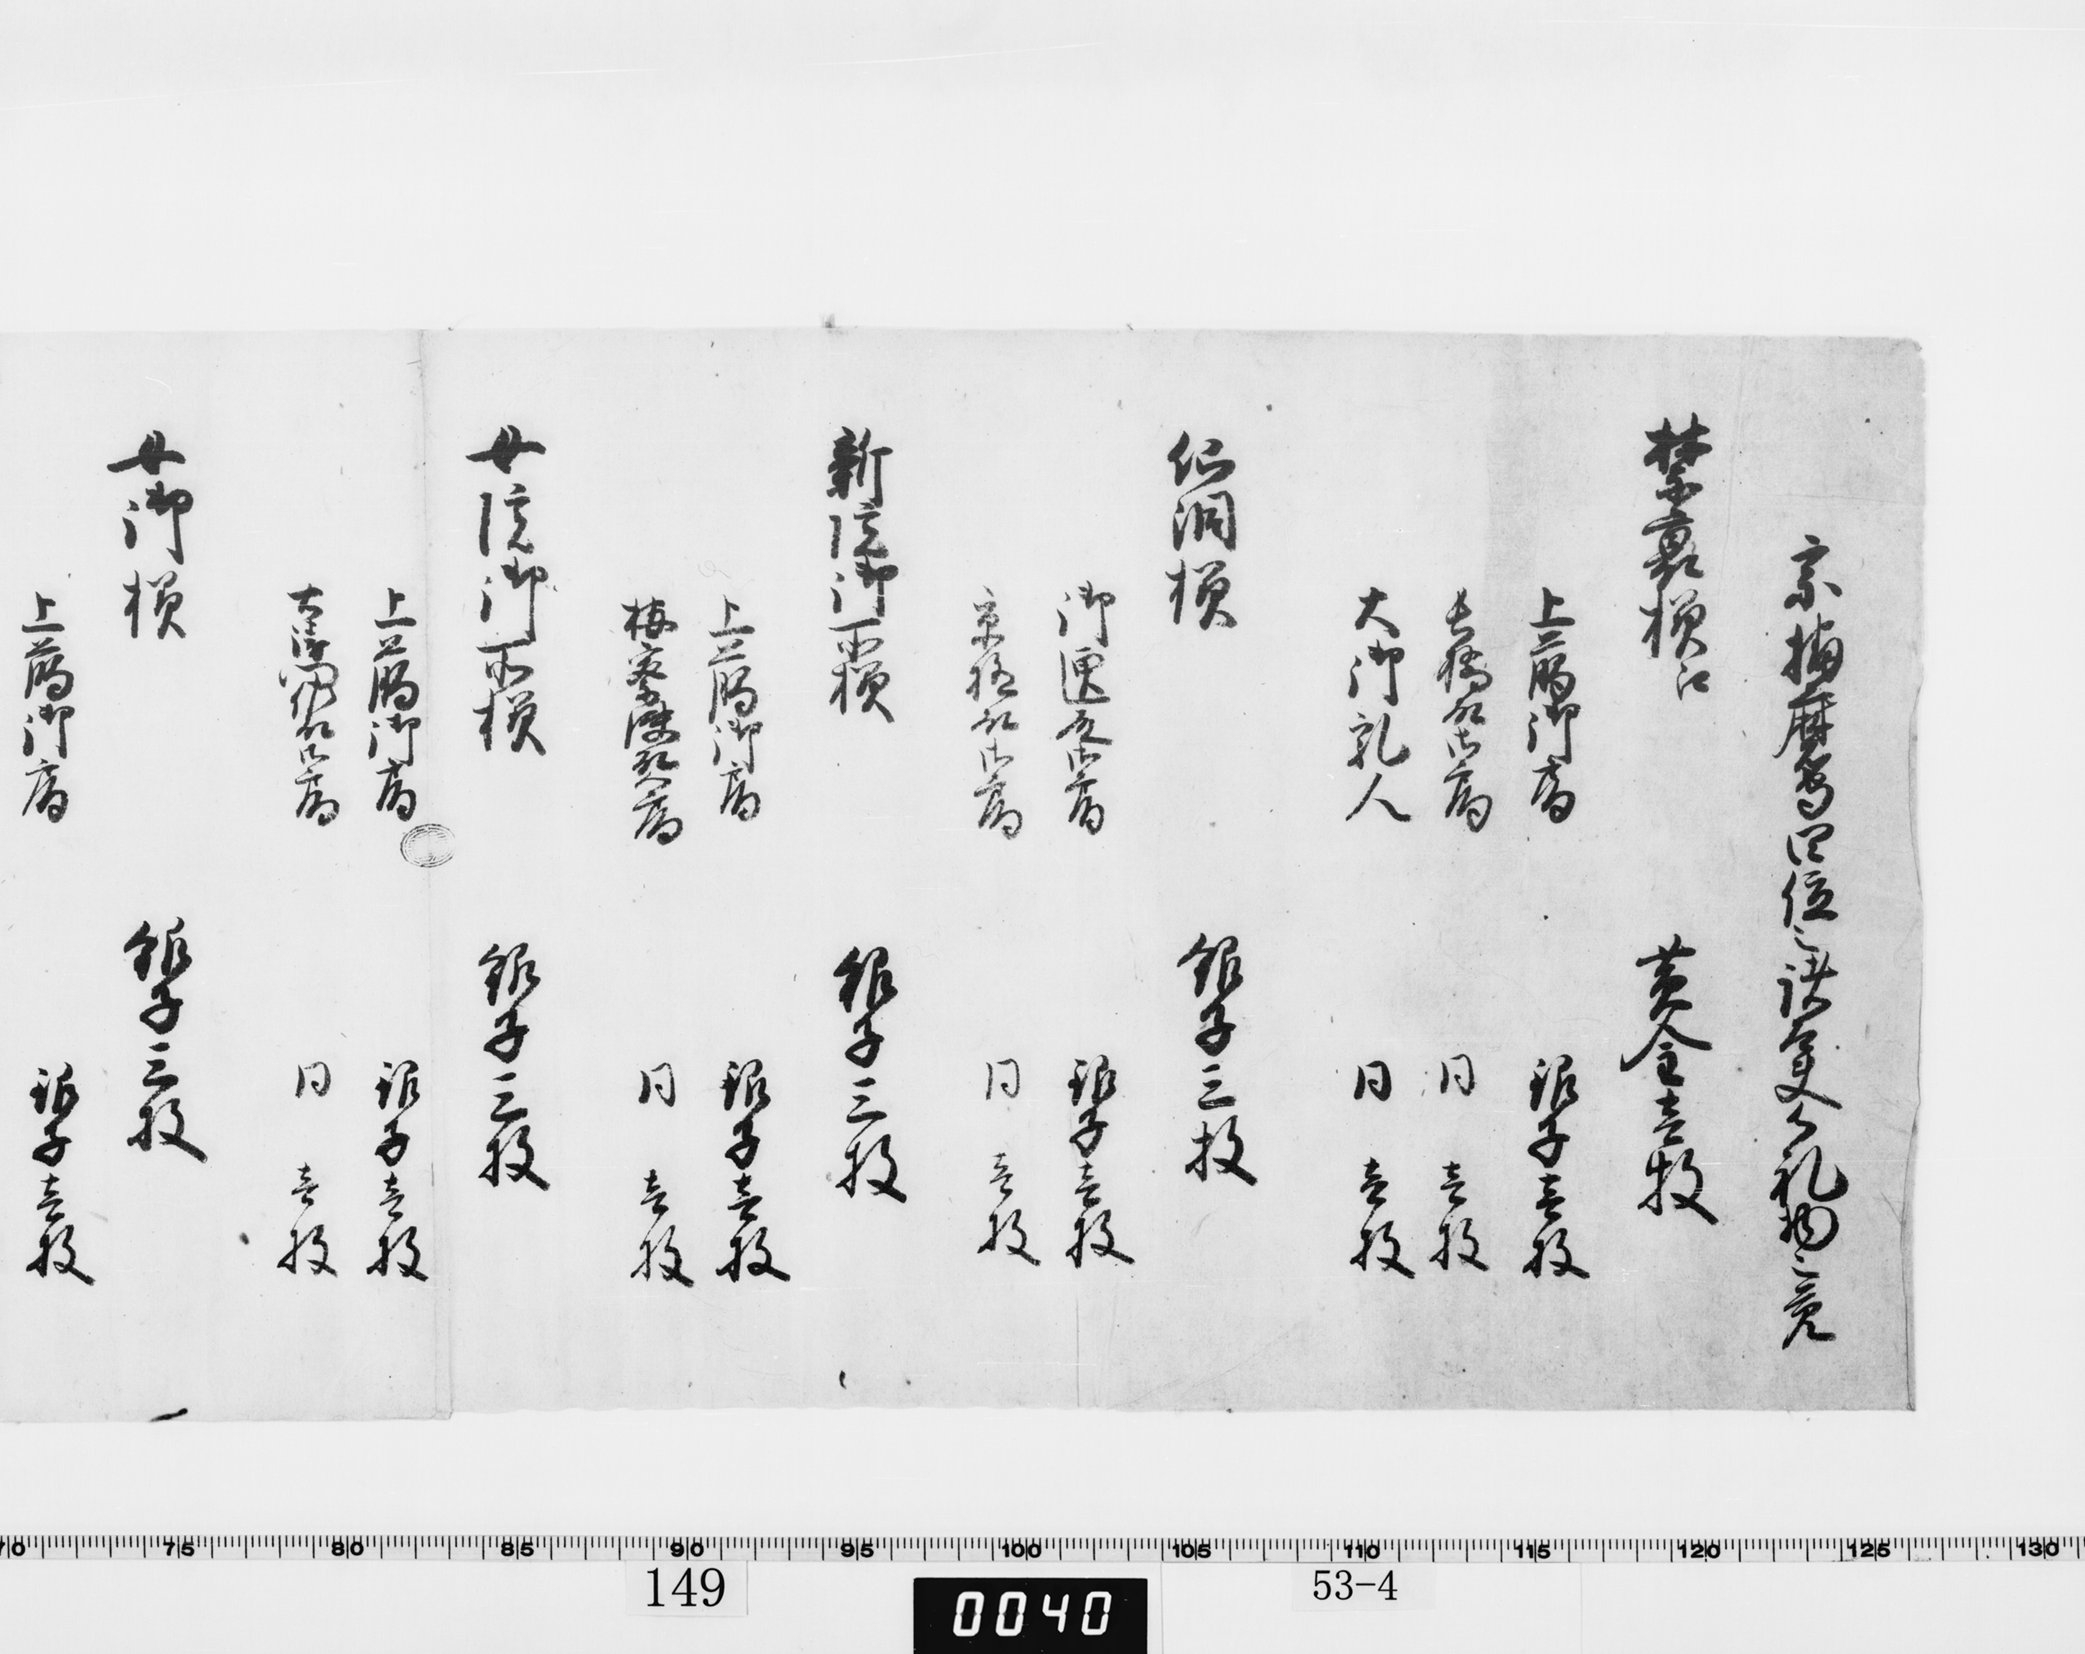 宗播磨守四位之諸大夫御礼物之覚
禁裏様江　黄金壱枚
上臈御局　銀子壱枚
長橋殿御局　同　壱枚
大御乳人　同　壱枚
仙洞様　銀子三枚
御匣殿御局　銀子壱枚
京極殿御局　同　壱枚
新院御所様　銀子三枚
上臈御局　銀子壱枚
按察使殿御局　同　壱枚
女院御所様　銀子三枚
上臈御局　銀子壱枚
右衛門佐殿御局　同　壱枚
女御様　銀子三枚
上臈御局　銀子壱枚
70 75 80 85 90 95 100 105 110 115 120 125 130
149
0040
53-4